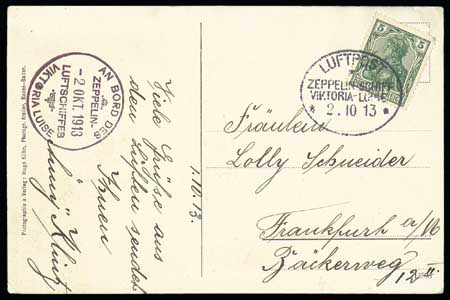 AN BORD DES
ZEPPELIN-
-2. OKT. 1913
LUFTSCHIFFES
VIKTORIA LUISE
1.10.13.
Viele Grüße aus
den Lüften sendet
Ihnen
Photographie u. Verlag: Hugo Kühn, Photogr. Atelier, Baden-Baden.
5
LUFTPOST
ZEPPELIN-SCHIFF
VIKTORIA-LUISE
* 2.10 13 *
Fräulein
Lolly Schneider
Frankfurt a/M
Bäckerweg 12 II.